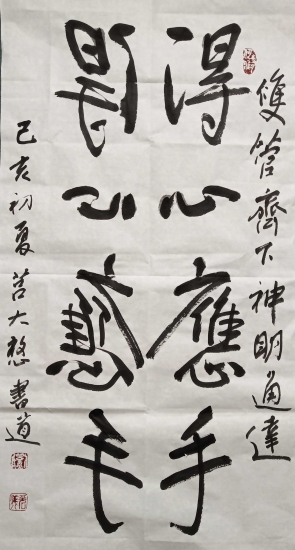 雙管齊下神明通達
得心應手
得心應手
己亥初夏大書道